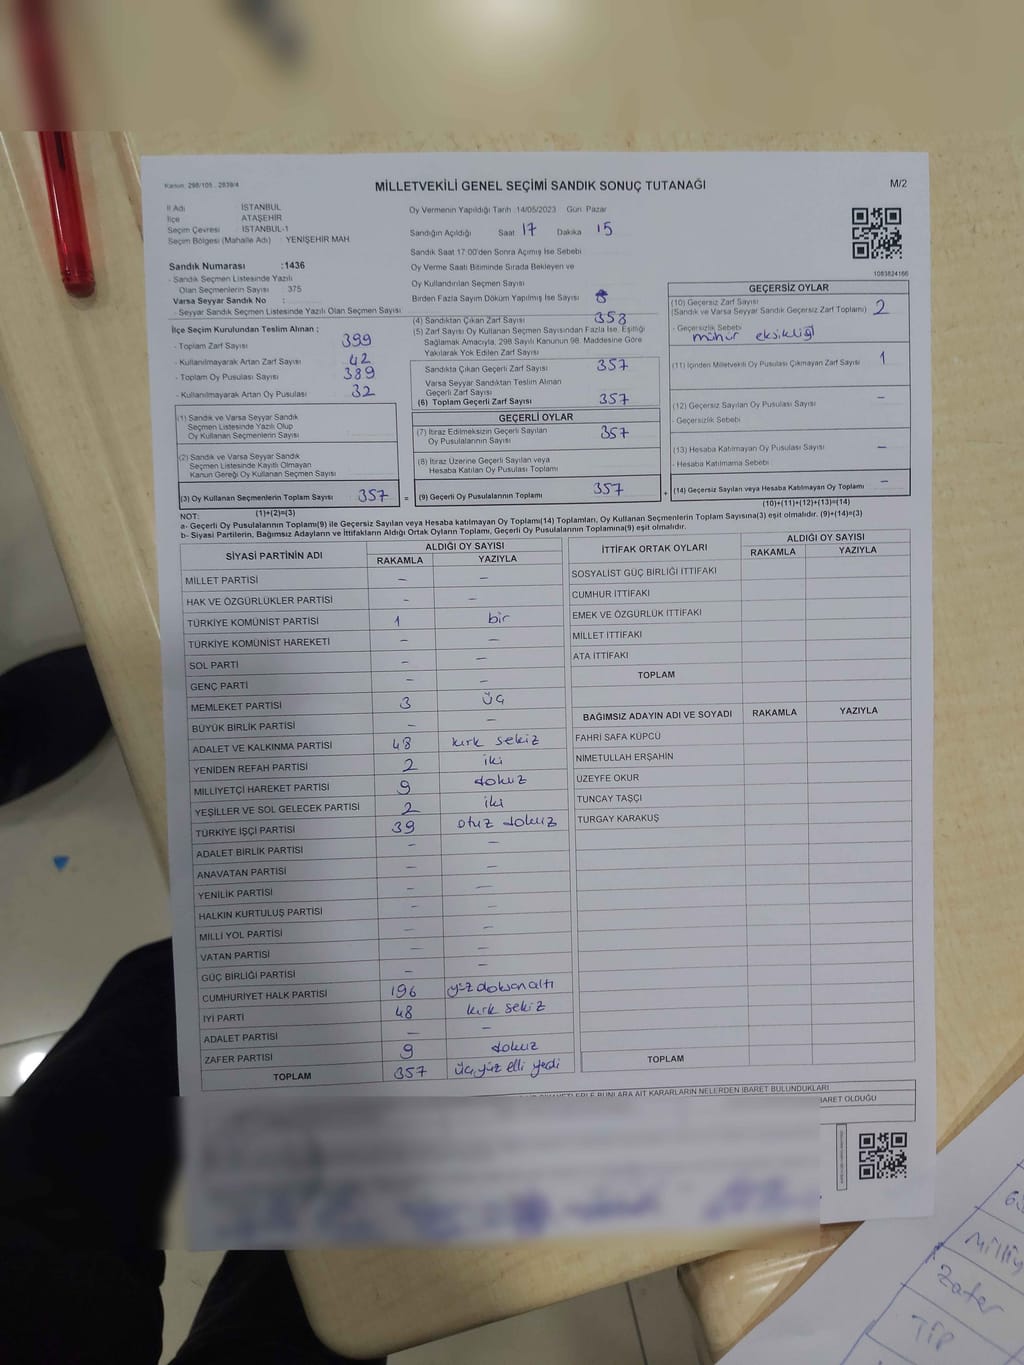 Kanun: 298/105 , 2839/4
MİLLETVEKİLİ GENEL SEÇİMİ SANDIK SONUÇ TUTANAĞI
M/2
İl Adı İSTANBUL
İlçe ATAŞEHİR
Seçim Çevresi İSTANBUL-1
Seçim Bölgesi (Mahalle Adı) : YENİŞEHİR MAH
Sandık Numarası :1436
- Sandık Seçmen Listesinde Yazılı
Olan Seçmenlerin Sayısı : 375
Varsa Seyyar Sandık No :
- Seyyar Sandık Seçmen Listesinde Yazılı Olan Seçmen Sayısı
Oy Vermenin Yapıldığı Tarih :14/05/2023 Gün: Pazar
Sandığın Açıldığı Saat 17 Dakika 15
Sandık Saat 17:00'den Sonra Açımış İse Sebebi
Oy Verme Saati Bitiminde Sırada Bekleyen ve
Oy Kullandırılan Seçmen Sayısı
Birden Fazla Sayım Döküm Yapılmış İse Sayısı
1083824166
İlçe Seçim Kurulundan Teslim Alınan :
- Toplam Zarf Sayısı 399
- Kullanılmayarak Artan Zarf Sayısı 42
- Toplam Oy Pusulası Sayısı 389
- Kullanılmayarak Artan Oy Pusulası 32
(1) Sandık ve Varsa Seyyar Sandık
Seçmen Listesinde Yazılı Olup
Oy Kullanan Seçmenlerin Sayısı
(2) Sandık ve Varsa Seyyar Sandık
Seçmen Listesinde Kayıtlı Olmayan
Kanun Gereği Oy Kullanan Seçmen Sayısı
(3) Oy Kullanan Seçmenlerin Toplam Sayısı 357 =
(1)+(2)=(3)
(4) Sandıktan Çıkan Zarf Sayısı 358
(5) Zarf Sayısı Oy Kullanan Seçmen Sayısından Fazla İse, Eşitliği
Sağlamak Amacıyla, 298 Sayılı Kanunun 98. Maddesine Göre
Yakılarak Yok Edilen Zarf Sayısı
Sandıkta Çıkan Geçerli Zarf Sayısı 357
Varsa Seyyar Sandıktan Teslim Alınan
Geçerli Zarf Sayısı
(6) Toplam Geçerli Zarf Sayısı 357
GEÇERLİ OYLAR
(7) İtiraz Edilmeksizin Geçerli Sayılan
Oy Pusulalarının Sayısı 357
(8) İtiraz Üzerine Geçerli Sayılan veya
Hesaba Katılan Oy Pusulası Toplamı
(9) Geçerli Oy Pusulalarının Toplamı 357 +
GEÇERSİZ OYLAR
(10) Geçersiz Zarf Sayısı
(Sandık ve Varsa Seyyar Sandık Geçersiz Zarf Toplamı) 2
- Geçersizlik Sebebi
mühür eksikliği
(11) İçinden Milletvekili Oy Pusulası Çıkmayan Zarf Sayısı 1
(12) Geçersiz Sayılan Oy Pusulası Sayısı -
- Geçersizlik Sebebi
(13) Hesaba Katılmayan Oy Pusulası Sayısı -
- Hesaba Katılmama Sebebi
(14) Geçersiz Sayılan veya Hesaba Katılmayan Oy Toplamı -
(10)+(11)+(12)+(13)=(14)
NOT:
a- Geçerli Oy Pusulalarının Toplamı(9) ile Geçersiz Sayılan veya Hesaba katılmayan Oy Toplamı(14) Toplamları, Oy Kullanan Seçmenlerin Toplam Sayısına(3) eşit olmalıdır. (9)+(14)=(3)
b- Siyasi Partilerin, Bağımsız Adayların ve İttifakların Aldığı Ortak Oyların Toplamı, Geçerli Oy Pusulalarının Toplamına(9) eşit olmalıdır.
SİYASİ PARTİNİN ADI ALDIĞI OY SAYISI
RAKAMLA YAZIYLA
MİLLET PARTİSİ - -
HAK VE ÖZGÜRLÜKLER PARTİSİ - -
TÜRKİYE KOMÜNİST PARTİSİ 1 bir
TÜRKİYE KOMÜNİST HAREKETİ - -
SOL PARTİ - -
GENÇ PARTİ - -
MEMLEKET PARTİSİ 3 üç
BÜYÜK BİRLİK PARTİSİ - -
ADALET VE KALKINMA PARTİSİ 48 kırk sekiz
YENİDEN REFAH PARTİSİ 2 iki
MİLLİYETÇİ HAREKET PARTİSİ 9 dokuz
YEŞİLLER VE SOL GELECEK PARTİSİ 2 iki
TÜRKİYE İŞÇİ PARTİSİ 39 otuz dokuz
ADALET BİRLİK PARTİSİ - -
ANAVATAN PARTİSİ - -
YENİLİK PARTİSİ - -
HALKIN KURTULUŞ PARTİSİ - -
MİLLİ YOL PARTİSİ - -
VATAN PARTİSİ - -
GÜÇ BİRLİĞİ PARTİSİ - -
CUMHURİYET HALK PARTİSİ 196 yüz doksan altı
İYİ PARTİ 48 kırk sekiz
ADALET PARTİSİ - -
ZAFER PARTİSİ 9 dokuz
TOPLAM 357 üç yüz elli yedi
İTTİFAK ORTAK OYLARI ALDIĞI OY SAYISI
RAKAMLA YAZIYLA
SOSYALİST GÜÇ BİRLİĞİ İTTİFAKI
CUMHUR İTTİFAKI
EMEK VE ÖZGÜRLÜK İTTİFAKI
MİLLET İTTİFAKI
ATA İTTİFAKI
TOPLAM
BAĞIMSIZ ADAYIN ADI VE SOYADI RAKAMLA YAZIYLA
FAHRİ SAFA KÜPCÜ
NİMETULLAH ERŞAHİN
ÜZEYFE OKUR
TUNCAY TAŞÇI
TURGAY KARAKUŞ
TOPLAM
BUNLARA AİT KARARLARIN NELERDEN İBARET BULUNDUKLARI
İBARET OLDUĞU
Milliy
Zafer
TİP